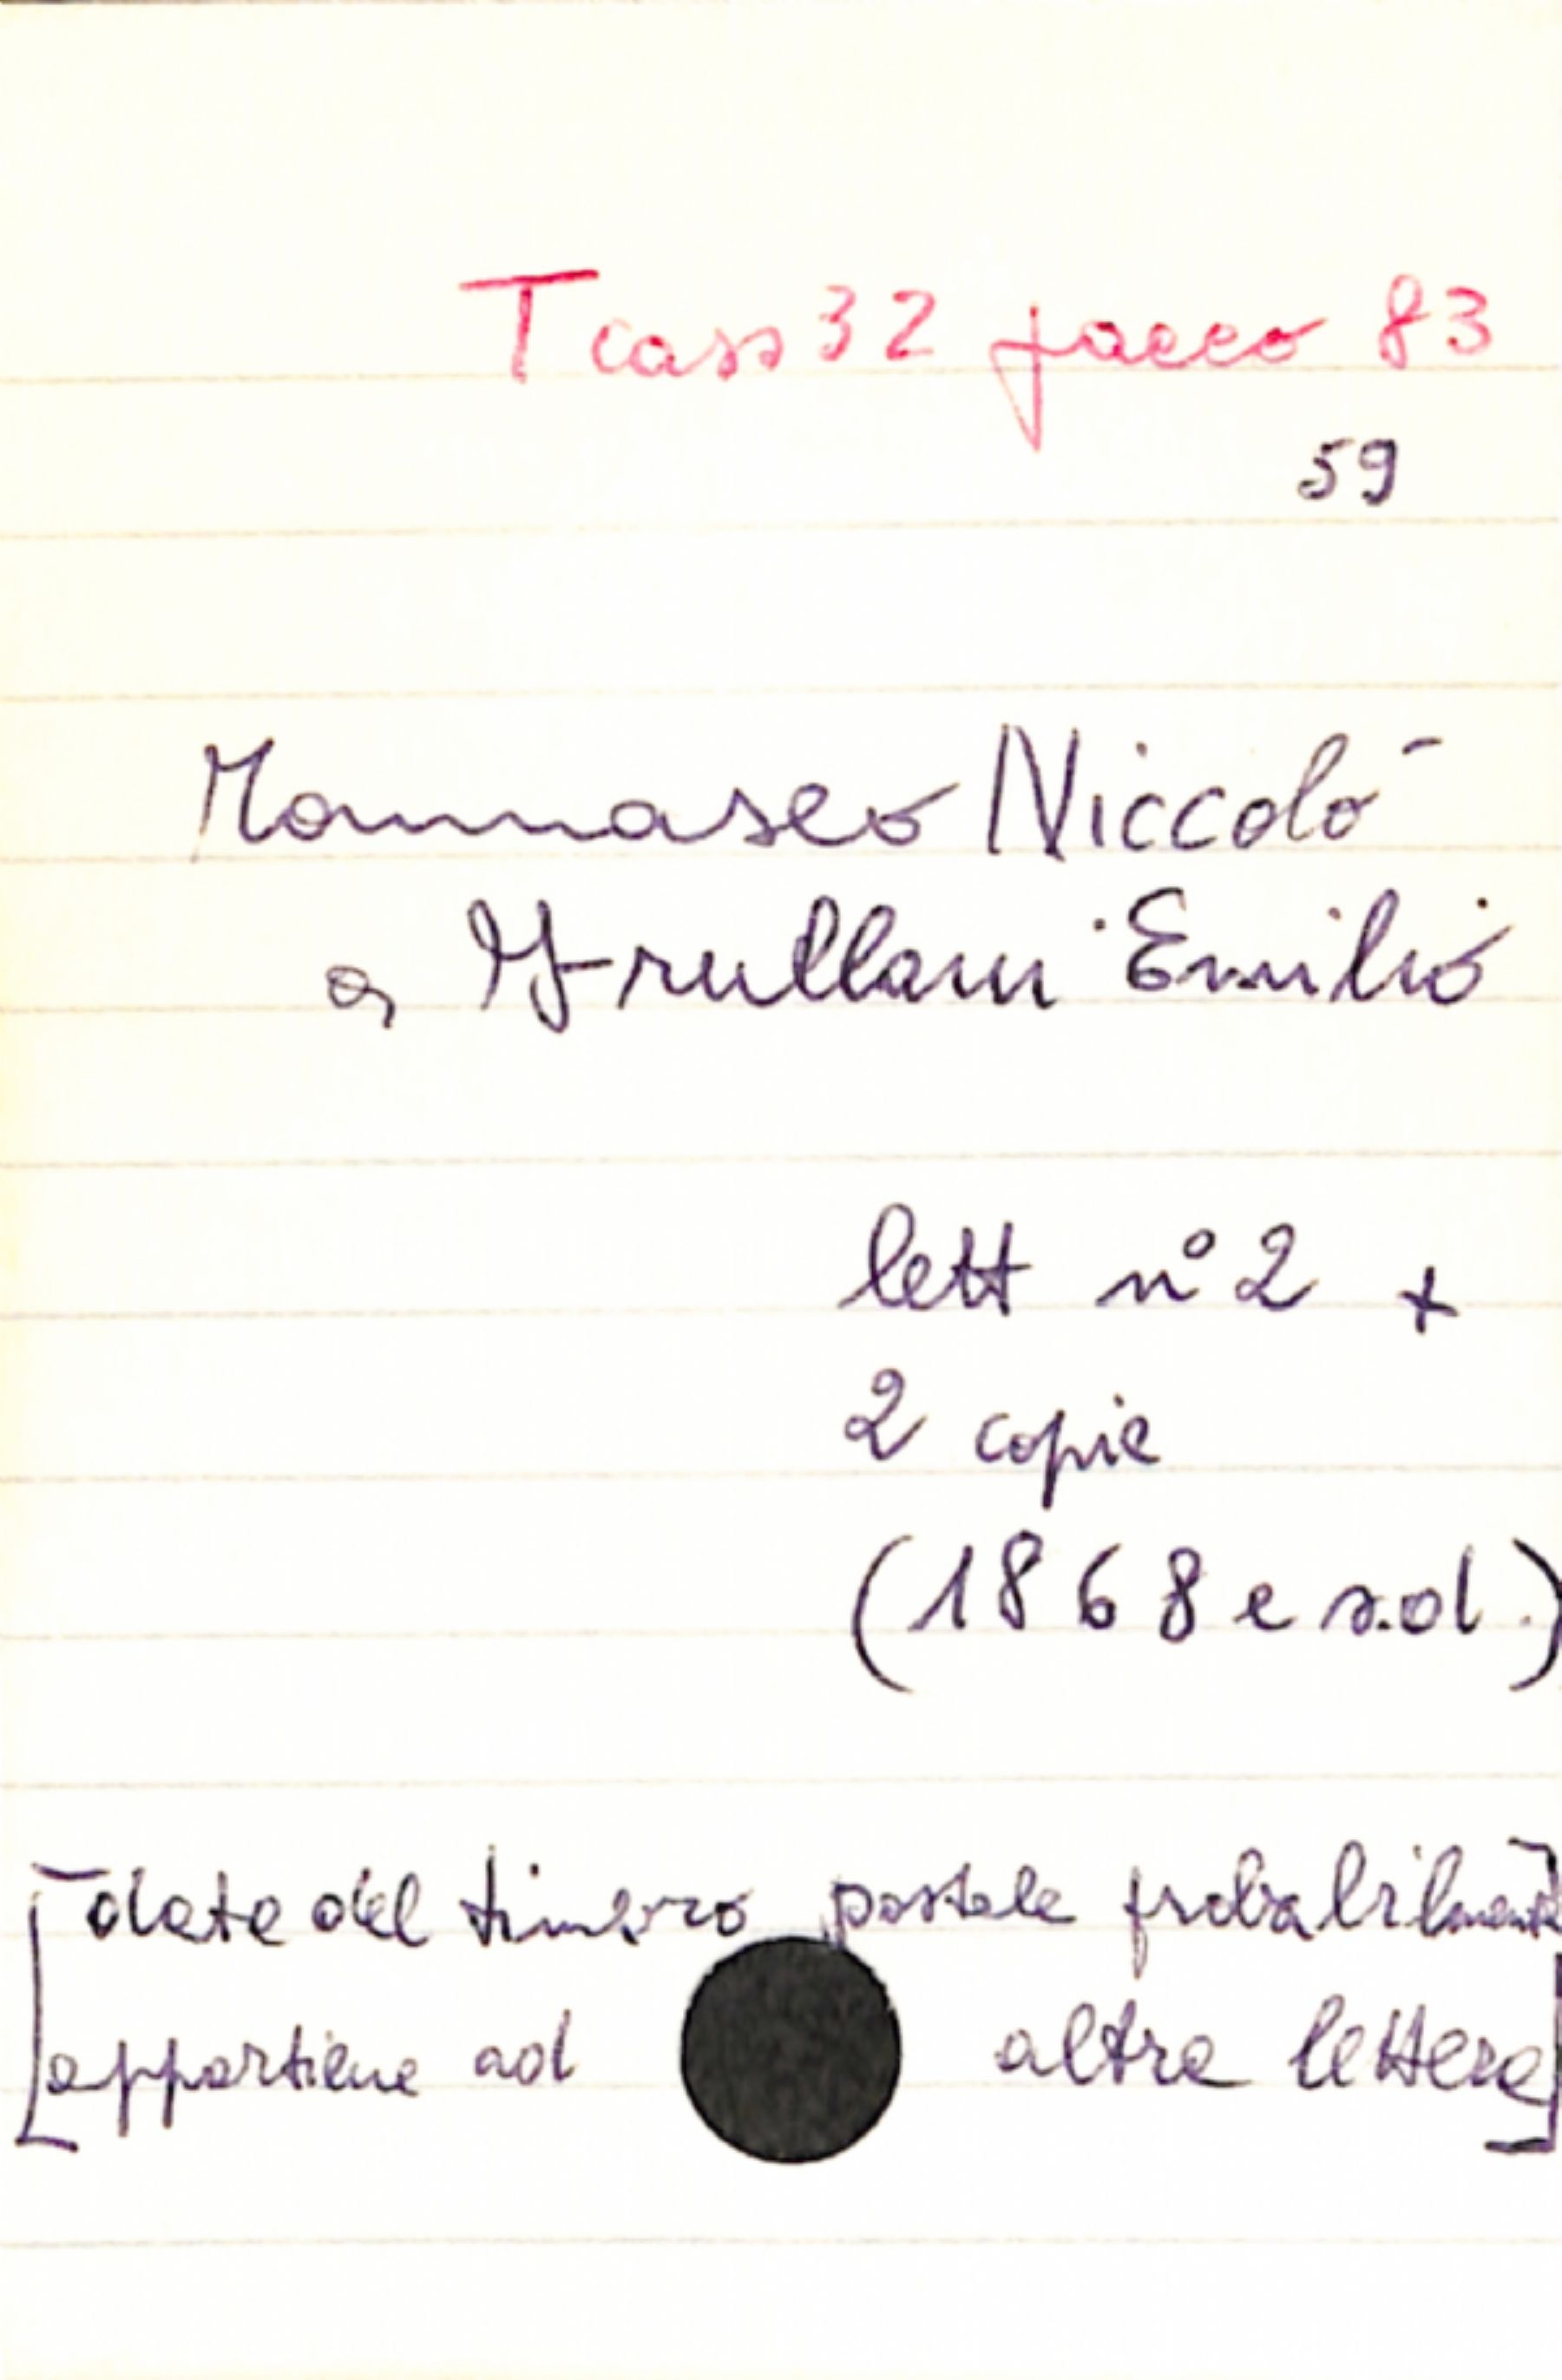 T cass 32 pacco 83
59
Tommaseo Niccolò
a Frullani Emilio
lett n° 2 +
2 copie
(1868 e s.d.)
[date del timbro postale probabilmente
appartiene ad altre lettere]